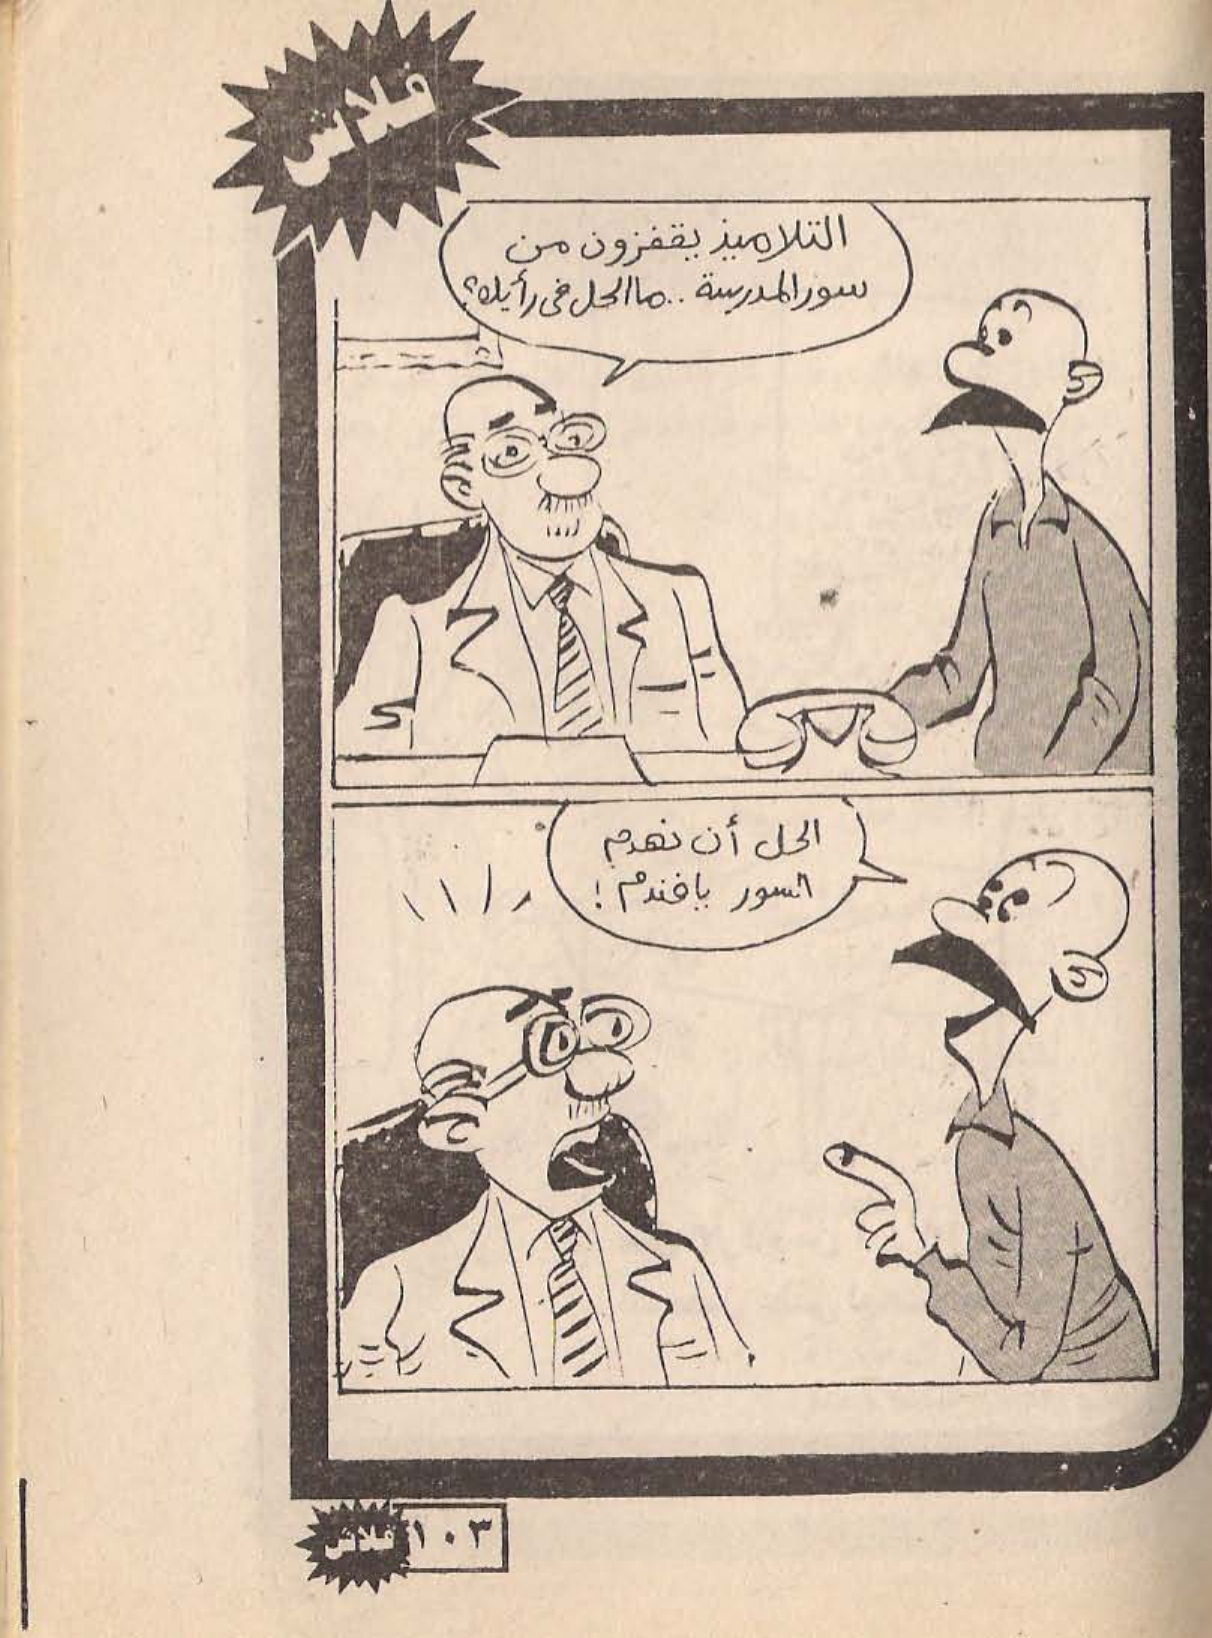 فلاش
التلاميذ يقفزون من
سور المدرسة .. ما الحل فى رأيك؟
الحل أن نهدم
السور يافندم !
فلاش ١٠٣